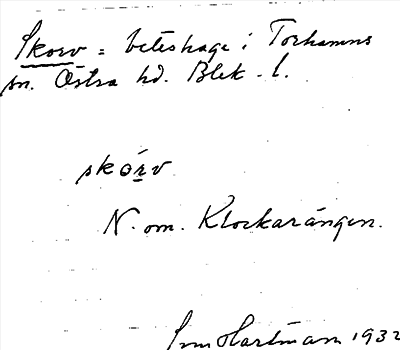 Skorv = beteshage i Torhamns
sn. Östra hd. Blek. l.
skórv
N. om. Klockarängen.
Hartman 1932